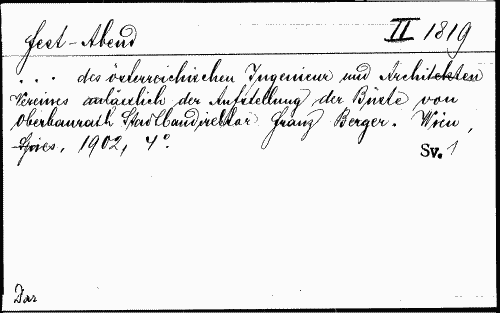 Fest-Abend II 1819
... des österreichischen Ingenieur und Architekten
Vereines anlässlich der Aufstellung der Büste von
Oberbaurath Stadtbaudirektor Franz Berger. Wien,
Spies, 1902, 4°.
Sv. 1
Dar